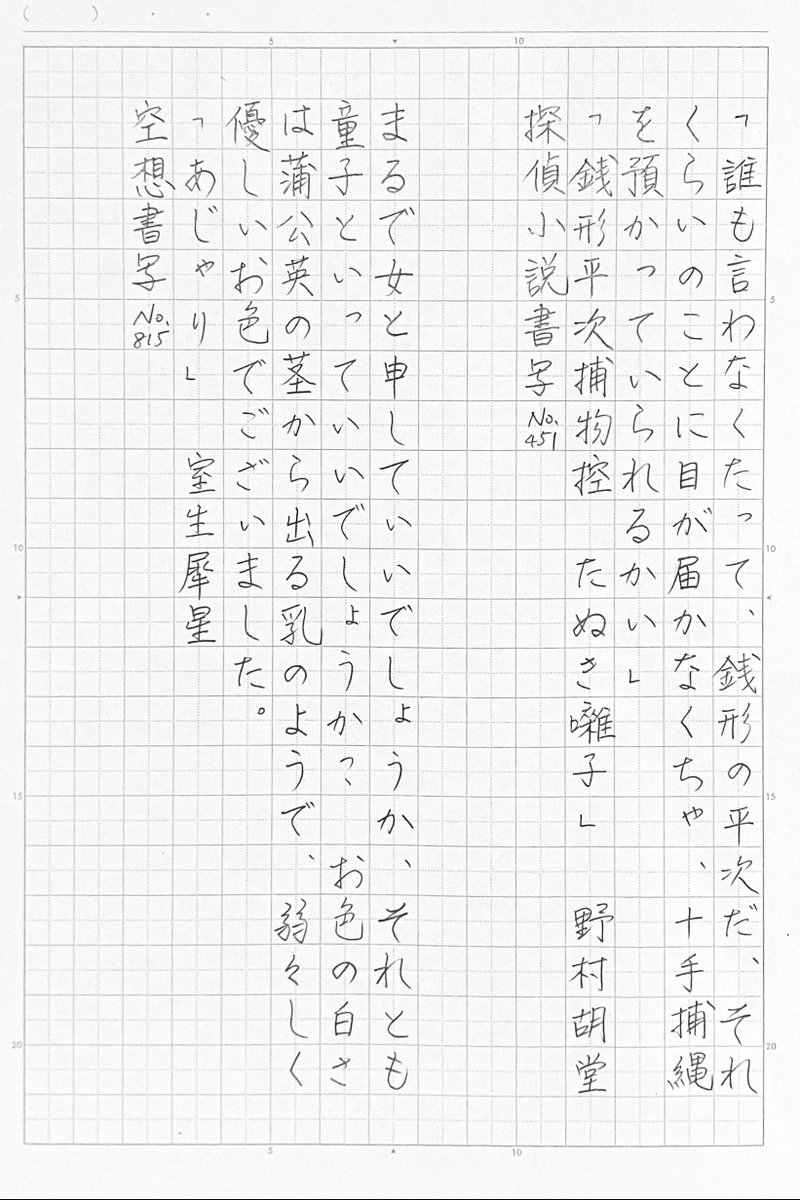 「誰も言わなくたって、銭形の平次だ、それ
くらいのことに目が届かなくちゃ、十手捕縄
を預かっていられるかい」
「銭形平次捕物控　たぬき囃子」　野村胡堂
探偵小説書写 No.451
まるで女と申していいでしょうか、それとも
童子といっていいでしょうか？　お色の白さ
は蒲公英の茎から出る乳のようで、弱々しく
優しいお色でございました。
「あじゃり」　室生犀星
空想書写 No.815
5
10
5
10
15
20
5
10
15
20
5
10